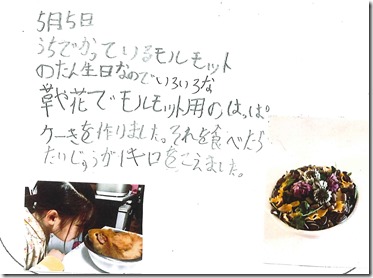 5月5日
うちでかっているモルモット
のたん生日なのでいろいろな
草や花でモルモット用のはっぱ
ケーキを作りました。それを食べたら
たいじゅうが1キロをこえました。